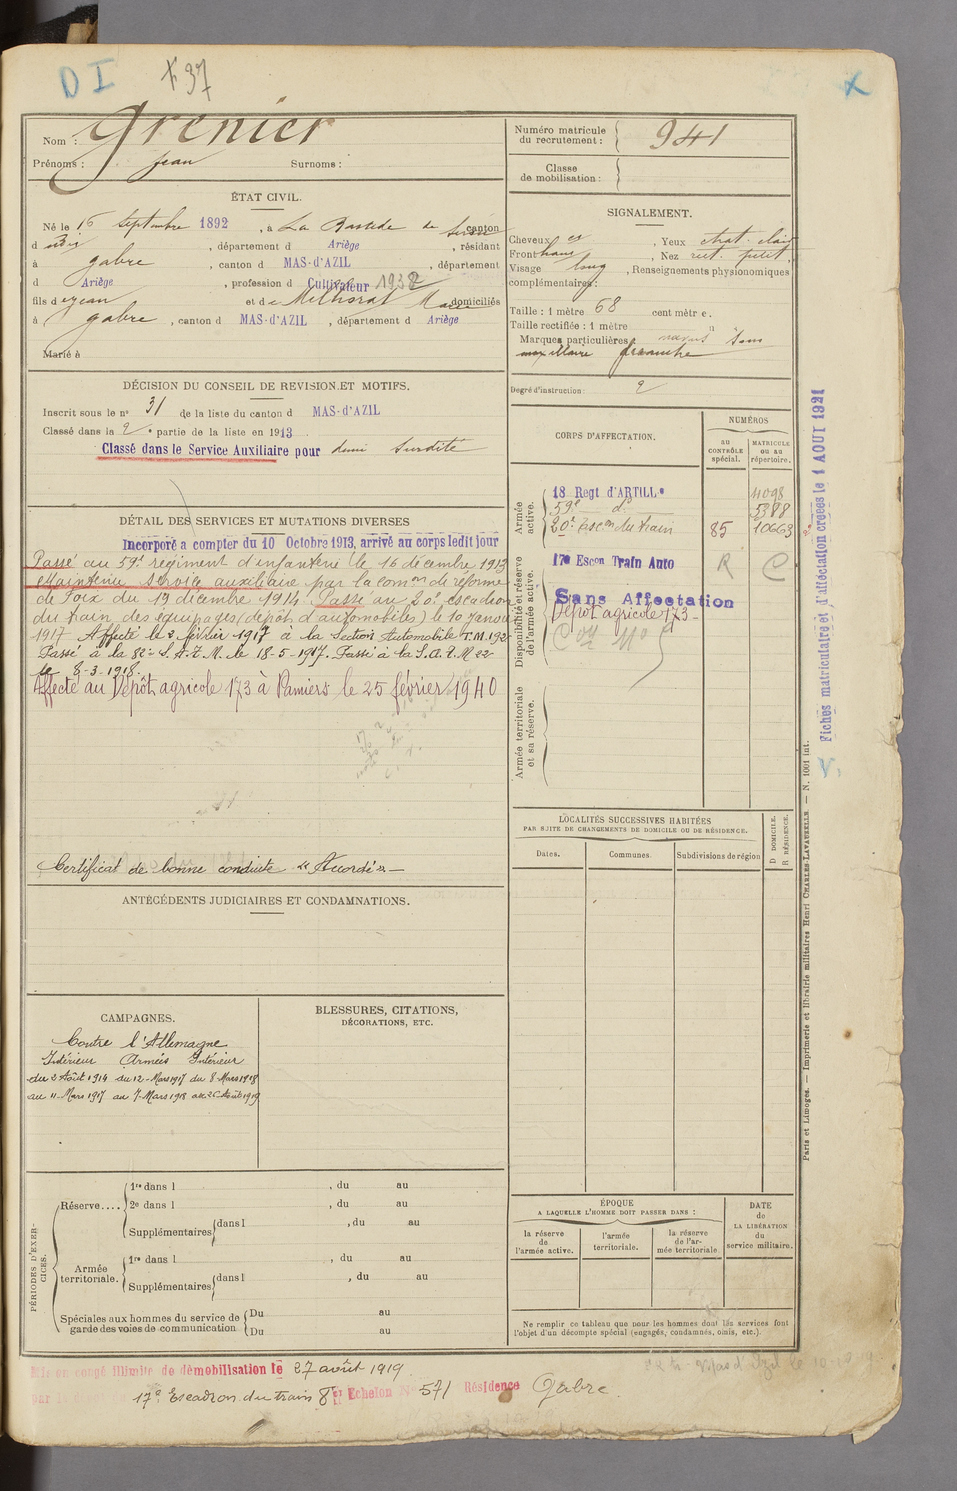 DI
37
Nom : Grenier
Prénoms : Jean Surnoms :
Numéro matricule du recrutement : 941
Classe de mobilisation :
ÉTAT CIVIL.
Né le 16 septembre 1892, à La Bastide de Serou canton
d , département d Ariège, résidant
à Gabre, canton d MAS-d'AZIL, département
d Ariège, profession d Cultivateur
fils de Jean et de domiciliés
à Gabre, canton d MAS-d'AZIL, département d Ariège
Marié à
SIGNALEMENT.
Cheveux , Yeux chat. clair
Front haut, Nez rect. petit,
Visage long, Renseignements physionomiques
complémentaires :
Taille : 1 mètre 68 centimètre.
Taille rectifiée : 1 mètre "
Marques particulières : naevus sous
maxillaire gauche
Degré d'instruction : 2
DÉCISION DU CONSEIL DE REVISION ET MOTIFS.
Inscrit sous le n° 31 de la liste du canton d MAS-d'AZIL
Classé dans la 2e partie de la liste en 1913
Classé dans le Service Auxiliaire pour demi surdité
DÉTAIL DES SERVICES ET MUTATIONS DIVERSES
Incorporé a compter du 10 Octobre 1913, arrivé au corps ledit jour
Passé au 59e régiment d'infanterie le 16 décembre 1913
Maintenu Service auxiliaire par la comon de réforme
de Foix du 19 décembre 1914. Passé au 20e escadron
du train des équipages (dépôt d'automobiles) le 10 Janvier
1917 Affecté le 2 février 1917 à la Section Automobile T.M. 192
Passé à la 82e S.A.T.M. le 18-5-1917. Passé à la S.A.T.M 22
le 8-3-1918.
Affecté au Dépôt agricole 173 à Pamiers le 25 février 1940
Certificat de bonne conduite "Accordé" —
CORPS D'AFFECTATION.
NUMÉROS
au CONTRÔLE spécial.
MATRICULE ou au répertoire.
Armée active.
18 Regt d'ARTILLie 4098
59e do 5388
20e Escon du train 85 10663
Disponibilité et réserve de l'armée active.
17e Escon Train Auto R C
Sans Affectation
Dépôt agricole 173
Armée territoriale et sa réserve.
LOCALITÉS SUCCESSIVES HABITÉES
PAR SUITE DE CHANGEMENTS DE DOMICILE OU DE RÉSIDENCE.
Dates. Communes. Subdivisions de région
D DOMICILE.
R RÉSIDENCE.
ANTÉCÉDENTS JUDICIAIRES ET CONDAMNATIONS.
CAMPAGNES.
Contre l'Allemagne
Intérieur Armées Intérieur
du 2 Août 1914 du 12-Mars 1917 du 8 Mars 1918
au 11-Mars 1917 au 7-Mars 1918 au 26-Août 1919
BLESSURES, CITATIONS,
DÉCORATIONS, ETC.
PÉRIODES D'EXERCICES.
Réserve....
1re dans l , du au
2e dans l , du au
Supplémentaires dans l , du au
Armée territoriale.
1re dans l , du au
Supplémentaires dans l , du au
Spéciales aux hommes du service de garde des voies de communication
Du au
Du au
ÉPOQUE
A LAQUELLE L'HOMME DOIT PASSER DANS :
la réserve de l'armée active.
l'armée territoriale.
la réserve de l'armée territoriale.
DATE de LA LIBÉRATION du service militaire.
Ne remplir ce tableau que pour les hommes dont les services font
l'objet d'un décompte spécial (engagés, condamnés, omis, etc.).
Mis en congé illimité de démobilisation le 27 août 1919
par 17e Escadron du train 8e Echelon N° 571 Résidence Gabre
Fiches matriculaire et d'affectation créées le 1 AOUT 1921
Paris et Limoges. — Imprimerie et librairie militaires Henri CHARLES-LAVAUZELLE. — N. 1001 int.